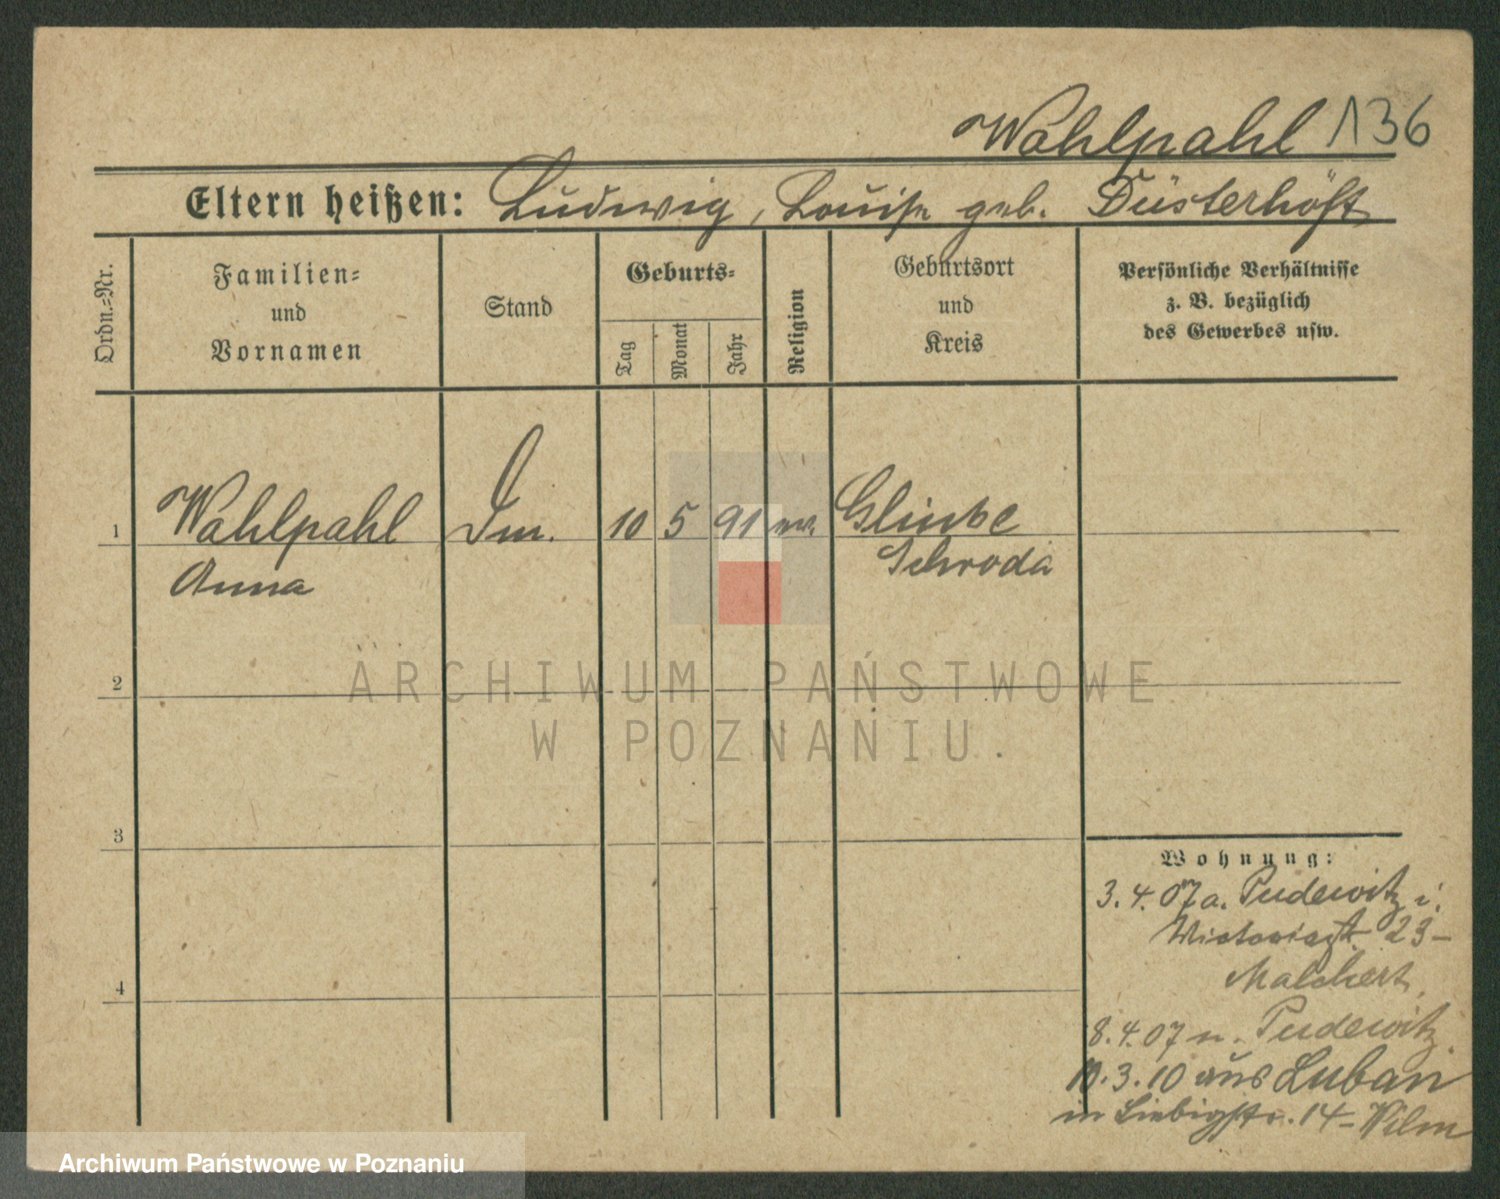 Wahlpahl 136
Eltern heißen: Ludwig, Louise geb. Düsterhöft
Ordn.-Nr.
Familien-
und
Vornamen
Stand
Geburts-
Tag
Monat
Jahr
Religion
Geburtsort
und
Kreis
Persönliche Verhältnisse
z. B. bezüglich
des Gewerbes usw.
1 Wahlpahl 10 5 91 ev.
Anna Schroda
2
3
4
Wohnung:
3.4.07 a. Pudewitz i.
23-
8.4.07 n. Pudewitz
10.3.10 aus Luban
in Liebigstr. 14-
ARCHIWUM PAŃSTWOWE
W POZNANIU.
Archiwum Państwowe w Poznaniu